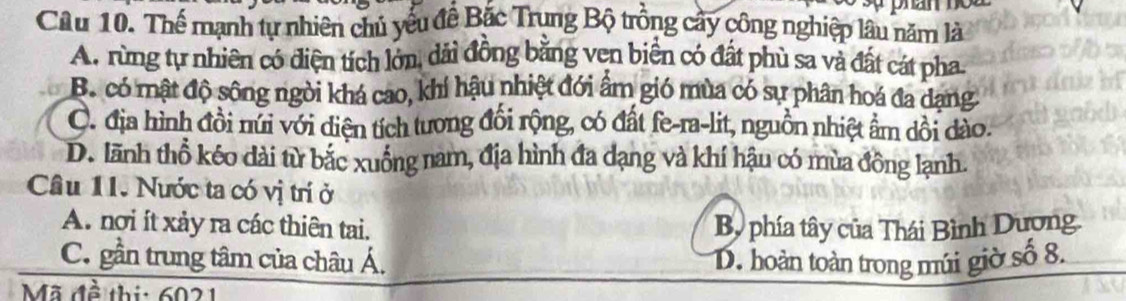 Câu 10. Thế mạnh tự nhiên chủ yếu để Bắc Trung Bộ trồng cây công nghiệp lâu năm là
A. rừng tự nhiên có diện tích lớn, dải đồng bằng ven biển có đất phù sa và đất cát pha.
B. có mật độ sông ngòi khá cao, khí hậu nhiệt đới ẩm gió mùa có sự phân hoá đa dạng.
C. địa hình đồi núi với diện tích tương đối rộng, có đất fe-ra-lit, nguồn nhiệt ẩm dồi dào.
D. lãnh thổ kéo dài từ bắc xuống nam, địa hình đa dạng và khí hậu có mùa đông lạnh.
Câu 11. Nước ta có vị trí ở
A. nơi ít xảy ra các thiên tai. B. phía tây của Thái Bình Dương.
C. gần trung tâm của châu Á. D. hoàn toàn trong múi giờ số 8.
Mã đề thi: 6021